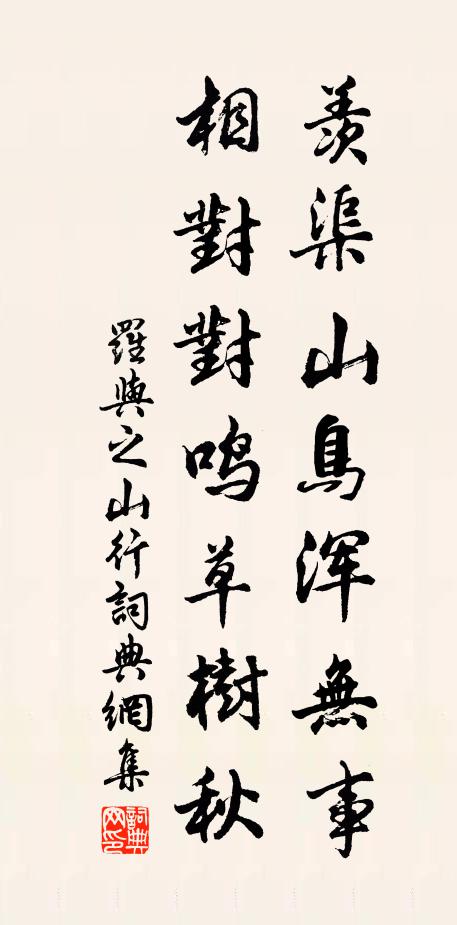 羨渠山鳥渾無事
相對對鳴草樹秋
羅與之山行詞典網集
詞典網印